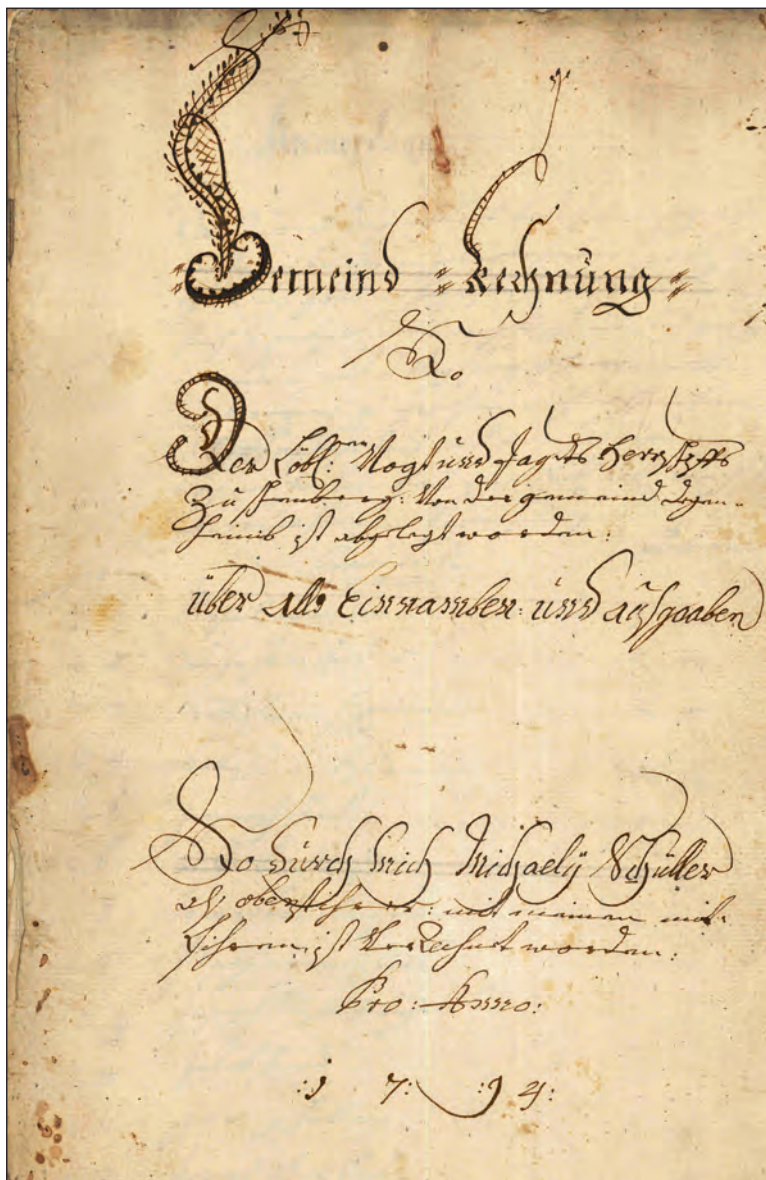 Gemeind Rechnung
So
Der Löbl: Vogt und Jagdts Herrschafft
Zu : Von der gemeind
ist abgelegt worden:
über alls Einnamben: und ausgaaben
So durch mich Michaely Schüller
als ober : mit meinen mit
ist Verrechnet worden:
Pro: Anno:
:1 7: :9 4: